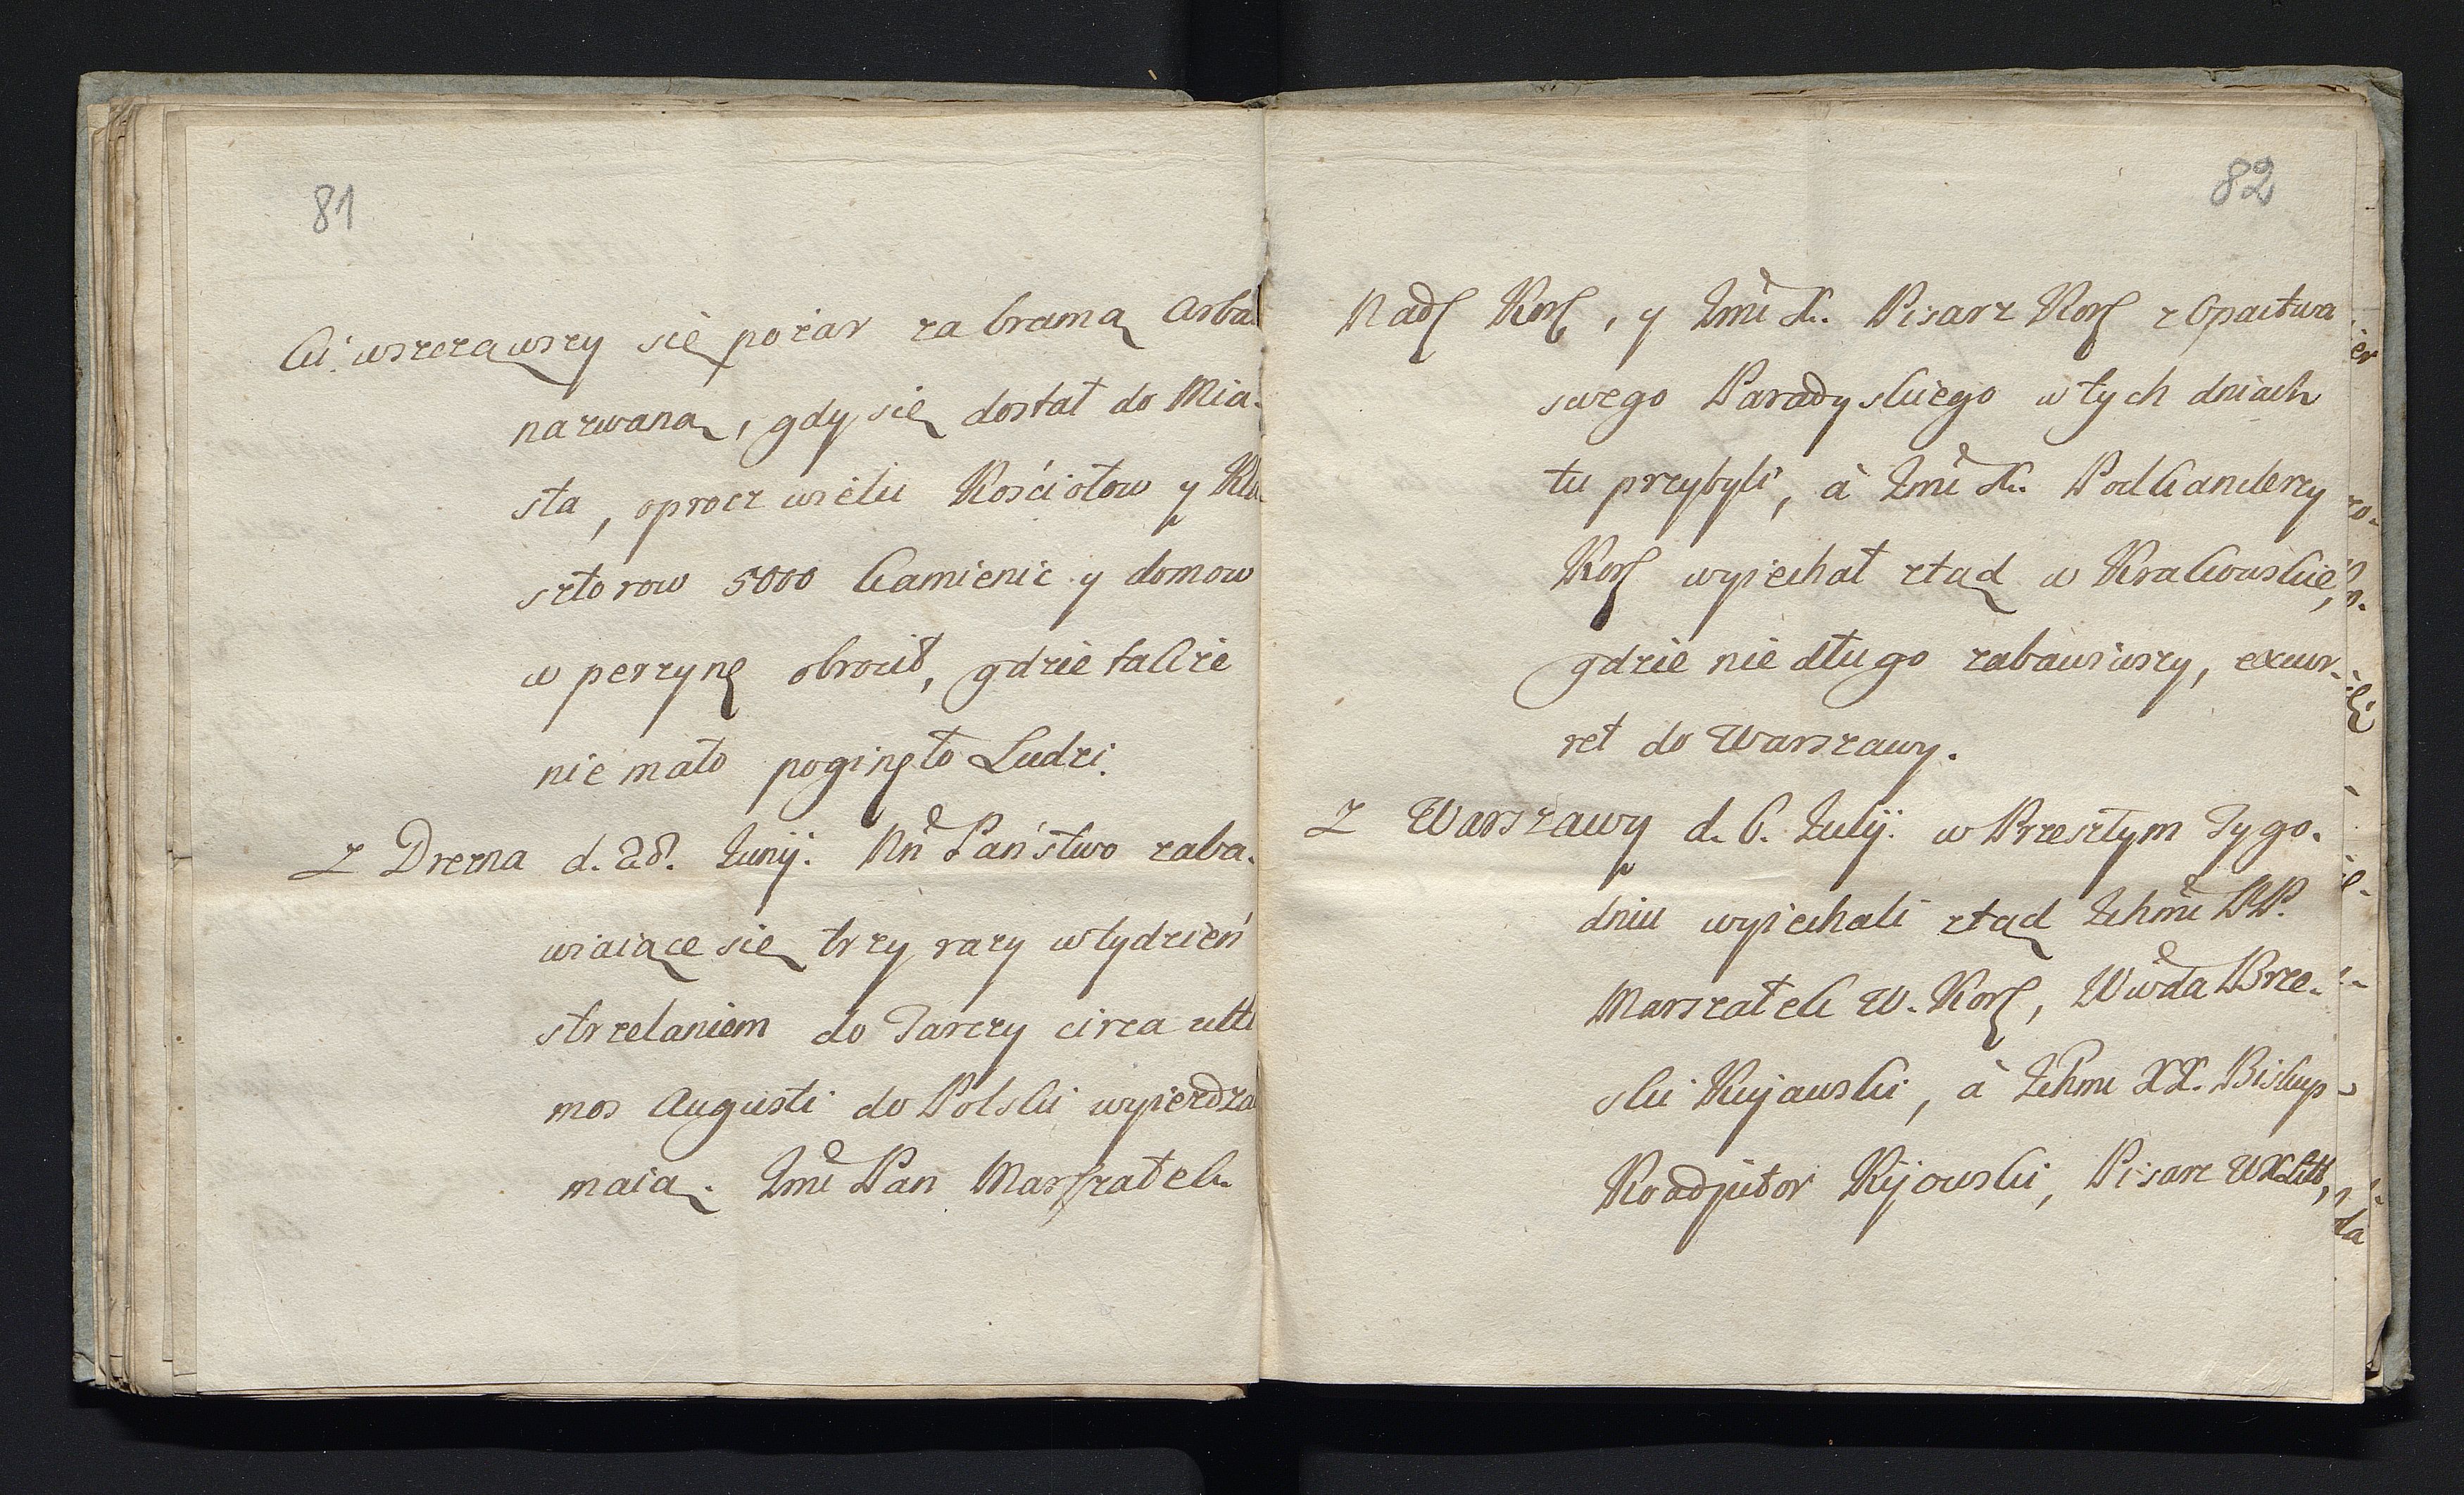 81
ki wszcząwszy się pożar za bramą Arba
nazwaną, gdy się dostał do Mia-
sta, oprocz wielu Kościołow y Kla
sztorow 5000 kamienic y domow
w perzynę obrocił, gdzie także
nie mało poginęło Ludzi.
Z Drezna d. 28. Junij. Nñ Państwo zaba-
wiaiące się trzy razy w tydzień
strzelaniem do Tarczy circa ulti
mos Augusti do Polski wyieżdza
maią. Jmć Pan Marszałek
82
Nad Kor, y Jmć X. Pisarz Kor z Opactwa
swego Paradyskiego w tych dniach
tu przybyli, à Jmć X. Podkanclerzy
Kor wyiechał ztąd w Krakowskie,
gdzie nie długo zabawiwszy, excur-
ret do Warszawy.
Z Warszawy d. 6. Julij. w Przeszłym Tygo-
dniu wyiechali ztąd Ichmć PP.
Marszałek W. Kor, Wwda Brze-
ski Kujawski, à Ichmc XX. Biskup
Koadjutor Kijowski, Pisarz WXLitt,